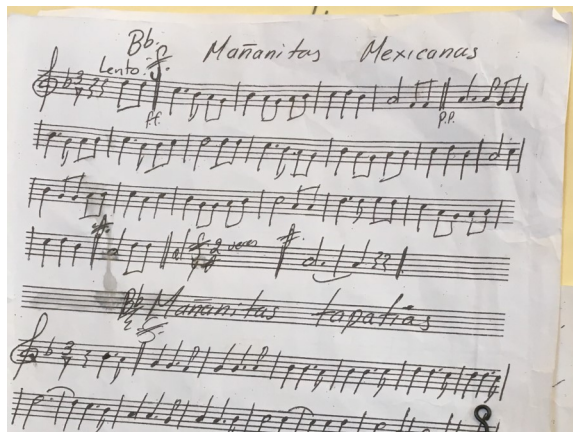 Bb. Mañanitas Mexicanas
Lento
ff. p.p.
2 veces
Bb Mañanitas tapatías